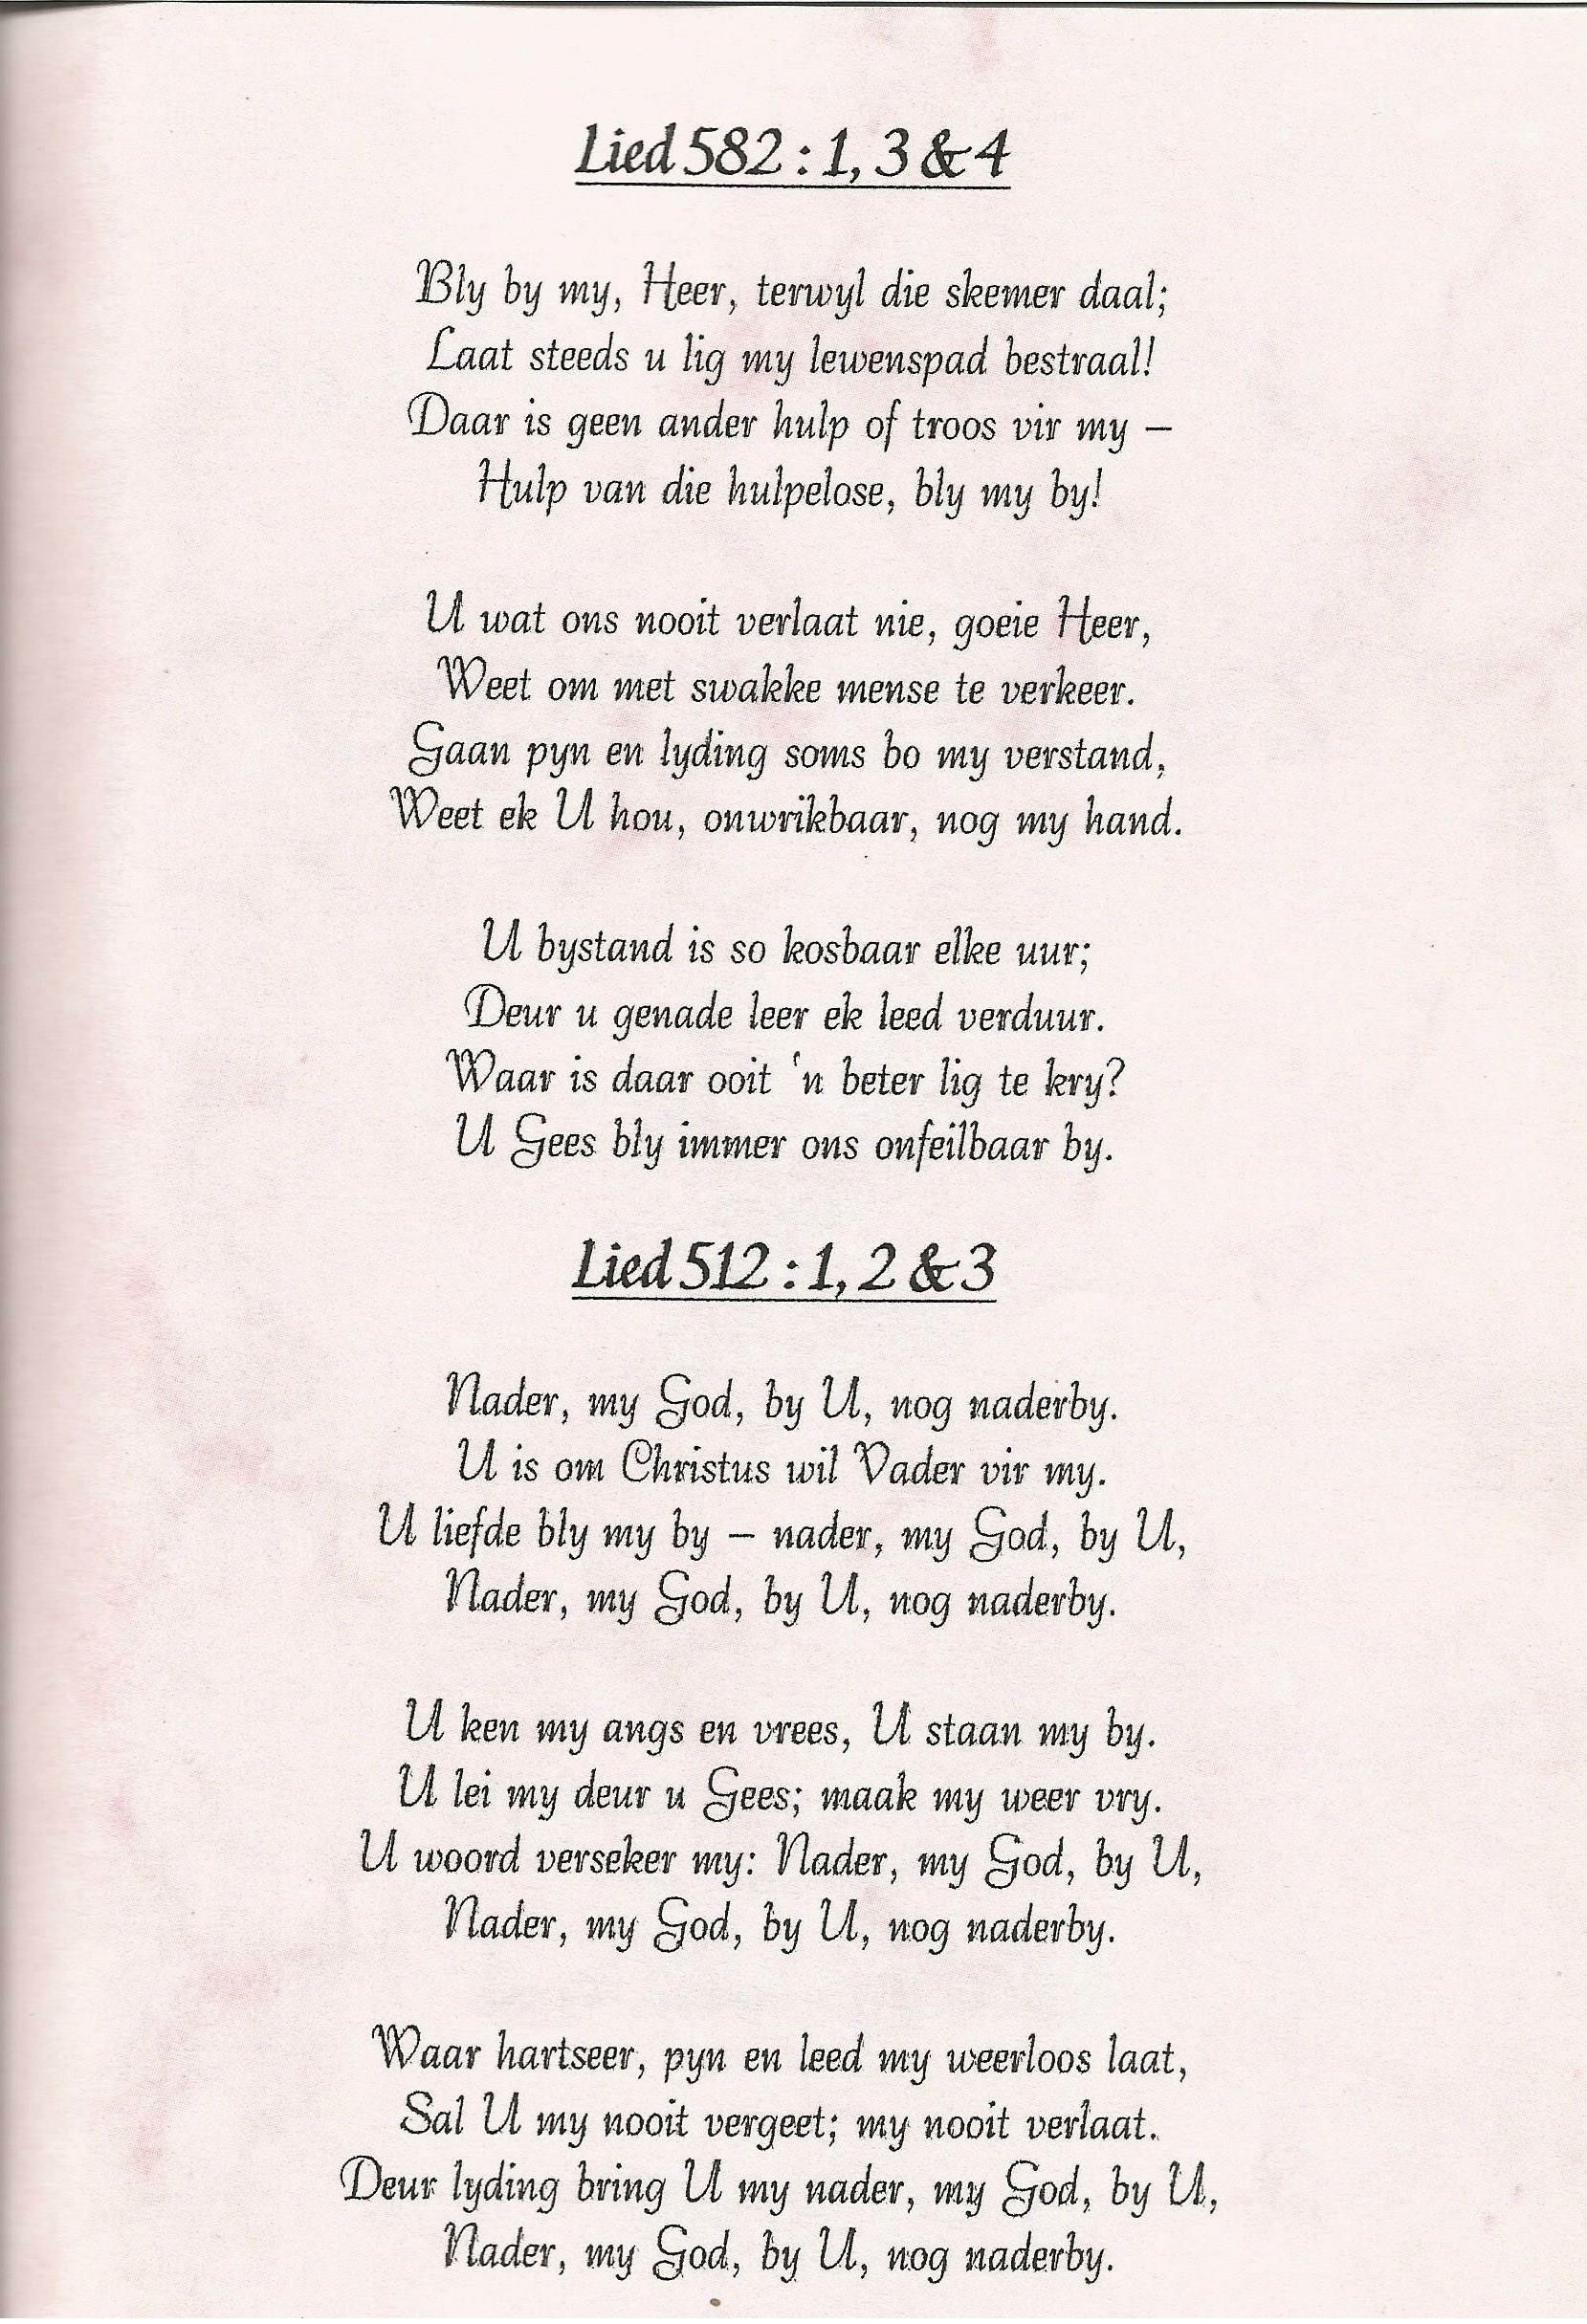 Lied 582 : 1, 3 & 4
Bly by my, Heer, terwyl die skemer daal;
Laat steeds u lig my lewenspad bestraal!
Daar is geen ander hulp of troos vir my –
Hulp van die hulpelose, bly my by!
U wat ons nooit verlaat nie, goeie Heer,
Weet om met swakke mense te verkeer.
Gaan pyn en lyding soms bo my verstand,
Weet ek U hou, onwrikbaar, nog my hand.
U bystand is so kosbaar elke uur;
Deur u genade leer ek leed verduur.
Waar is daar ooit ‘n beter lig te kry?
U Gees bly immer ons onfeilbaar by.
Lied 512 : 1, 2 & 3
Nader, my God, by U, nog naderby.
U is om Christus wil Vader vir my.
U liefde bly my by – nader, my God, by U,
Nader, my God, by U, nog naderby.
U ken my angs en vrees, U staan my by.
U lei my deur u Gees; maak my weer vry.
U woord verseker my: Nader, my God, by U,
Nader, my God, by U, nog naderby.
Waar hartseer, pyn en leed my weerloos laat,
Sal U my nooit vergeet; my nooit verlaat.
Deur lyding bring U my nader, my God, by U,
Nader, my God, by U, nog naderby.